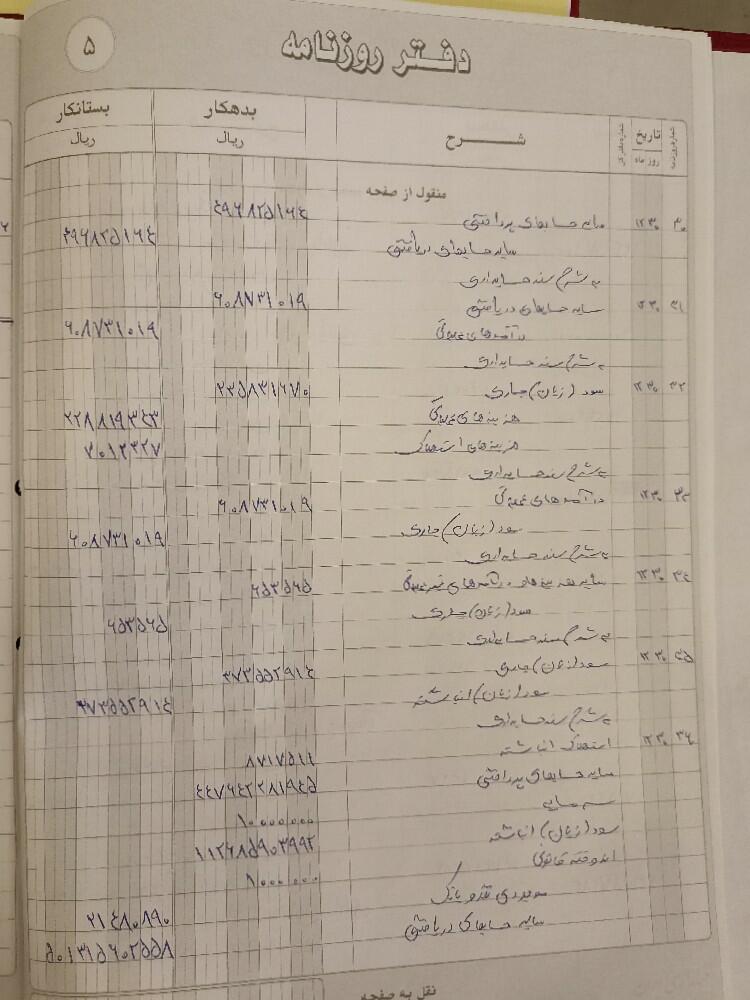 ۵
دفتر روزنامه
شماره روزنامه تاریخ شرح بدهکار بستانکار
روز ماه ریال ریال
منقول از صفحه
۳۰ ۱۲۳۰ سایر حسابهای پرداختنی ۴۹۶۸۲۵۱۶۴
سایر حسابهای دریافتنی ۴۹۶۸۲۵۱۶۴
به شرح سند حسابداری
۳۱ ۱۲۳۰ سایر حسابهای دریافتنی ۶۰۸۷۳۱۰۱۹
درآمدهای عملیاتی ۶۰۸۷۳۱۰۱۹
به شرح سند حسابداری
۳۲ ۱۲۳۰ سود (زیان) جاری ۲۳۵۸۳۱۶۷۰
هزینه های عملیاتی ۲۲۸۸۱۹۳۴۳
هزینه های استهلاک ۷۰۱۲۳۲۷
به شرح سند حسابداری
۳۳ ۱۲۳۰ درآمدهای عملیاتی ۶۰۸۷۳۱۰۱۹
سود (زیان) جاری ۶۰۸۷۳۱۰۱۹
به شرح سند حسابداری
۳۴ ۱۲۳۰ سایر هزینه ها و درآمدهای غیرعملیاتی ۶۵۳۵۶۵
سود (زیان) جاری ۶۵۳۵۶۵
به شرح سند حسابداری
۳۵ ۱۲۳۰ سود (زیان) جاری ۳۷۳۵۵۲۹۱۴
سود (زیان) انباشته ۳۷۳۵۵۲۹۱۴
به شرح سند حسابداری
۳۶ ۱۲۳۰ استهلاک انباشته ۸۷۱۷۵۱۱
سایر حسابهای پرداختنی ۴۴۷۶۴۲۲۸۱۹۴۵
سرمایه ۱۰۰۰۰۰۰۰
سود (زیان) انباشته ۱۱۲۶۸۵۹۰۳۹۹۲
اندوخته قانونی ۱۰۰۰۰۰۰
موجودی نقد و بانک ۲۱۴۸۰۸۹۰
سایر حسابهای دریافتنی ۵۰۱۳۱۵۶۰۲۵۵۸
نقل به صفحه